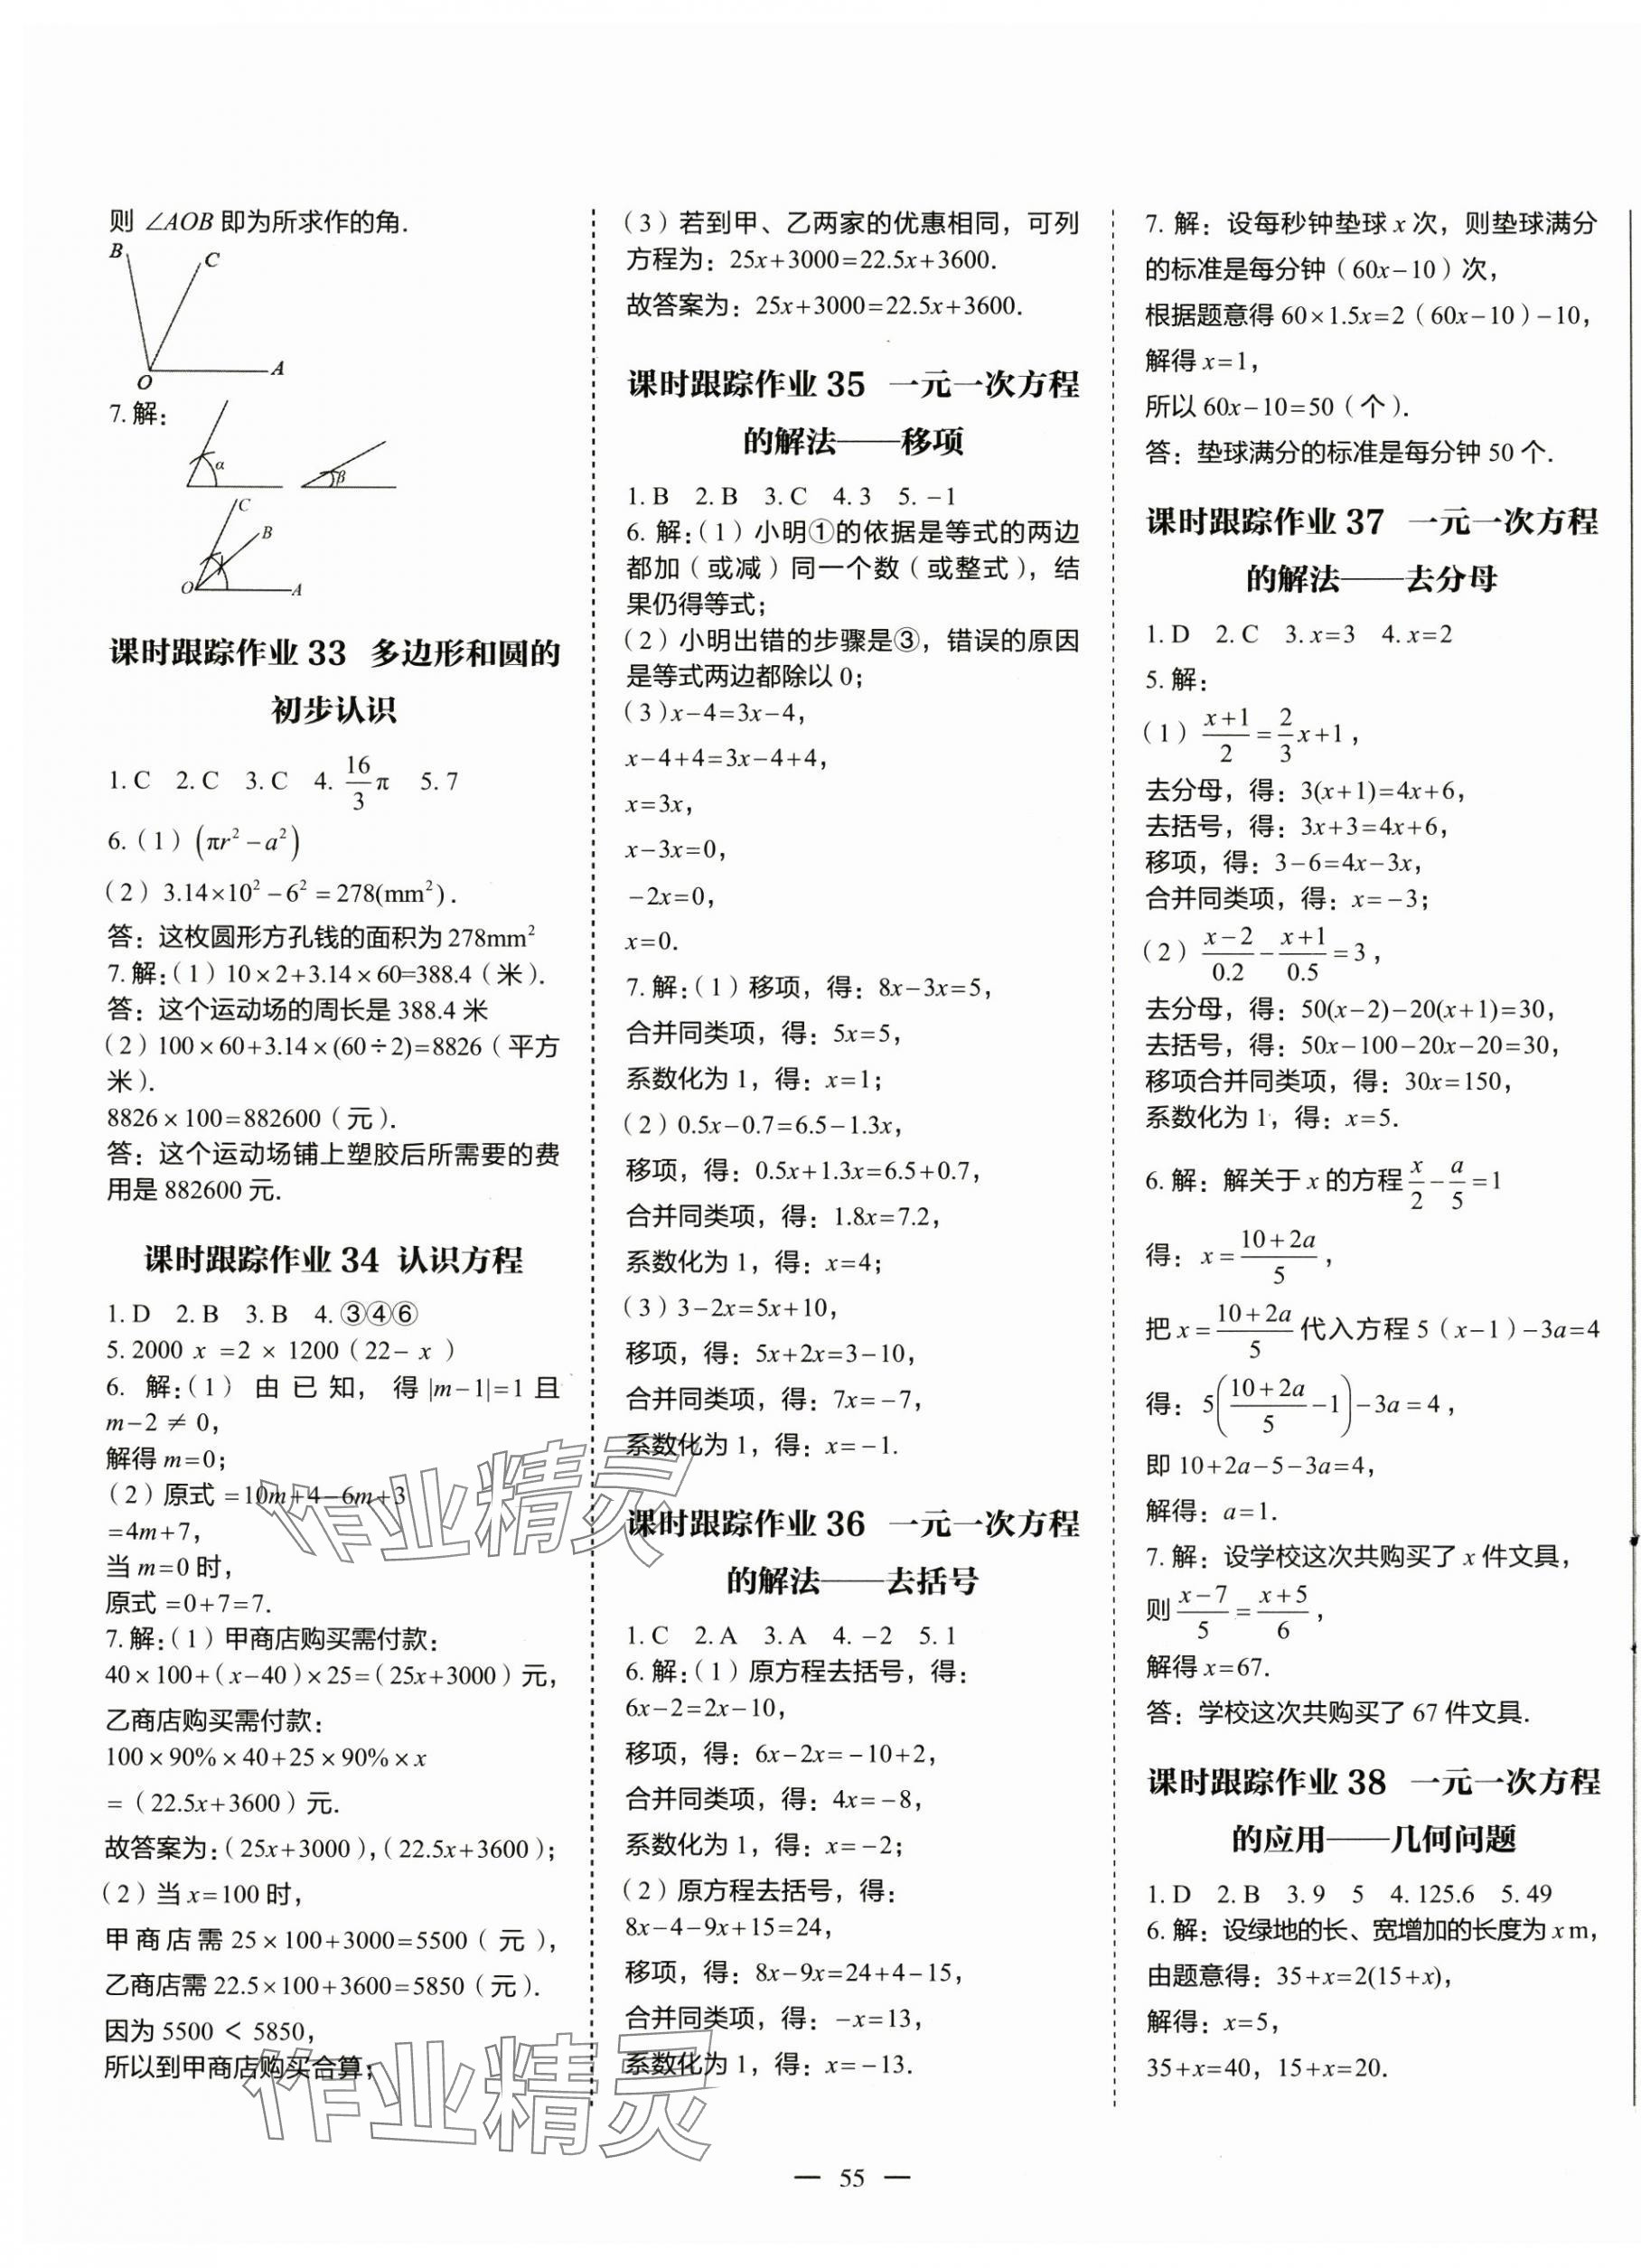 则 ∠AOB 即为所求作的角.
B
C
O
A
7. 解:
α
β
C
B
O
A
课时跟踪作业 33 多边形和圆的
初步认识
1. C 2. C 3. C 4. 16/3 π 5. 7
6.(1)(πr²-a²)
(2)3.14×10²-6²=278(mm²).
答：这枚圆形方孔钱的面积为 278mm²
7. 解:(1)10×2+3.14×60=388.4(米).
答：这个运动场的周长是 388.4 米
(2)100×60+3.14×(60÷2)=8826(平方
米).
8826×100=882600(元).
答：这个运动场铺上塑胶后所需要的费
用是 882600 元.
课时跟踪作业 34 认识方程
1. D 2. B 3. B 4. ③④⑥
5. 2000 x =2 × 1200(22- x )
6. 解:(1) 由已知, 得 |m-1|=1 且
m-2 ≠ 0,
解得 m=0;
(2)原式 =10m+4-6m+3
=4m+7,
当 m=0 时,
原式 =0+7=7.
7. 解:(1)甲商店购买需付款:
40×100+(x-40)×25=(25x+3000)元,
乙商店购买需付款:
100×90%×40+25×90%×x
=(22.5x+3600)元.
故答案为:(25x+3000),(22.5x+3600);
(2)当 x=100 时,
甲商店需 25×100+3000=5500(元),
乙商店需 22.5×100+3600=5850(元).
因为 5500 < 5850,
所以到甲商店购买合算;
(3)若到甲、乙两家的优惠相同，可列
方程为：25x+3000=22.5x+3600.
故答案为：25x+3000=22.5x+3600.
课时跟踪作业 35 一元一次方程
的解法——移项
1. B 2. B 3. C 4. 3 5. -1
6. 解:(1)小明①的依据是等式的两边
都加(或减)同一个数(或整式)，结
果仍得等式;
(2)小明出错的步骤是③，错误的原因
是等式两边都除以 0;
(3)x-4=3x-4,
x-4+4=3x-4+4,
x=3x,
x-3x=0,
-2x=0,
x=0.
7. 解:(1)移项，得：8x-3x=5,
合并同类项，得：5x=5,
系数化为 1，得：x=1;
(2)0.5x-0.7=6.5-1.3x,
移项，得：0.5x+1.3x=6.5+0.7,
合并同类项，得：1.8x=7.2,
系数化为 1，得：x=4;
(3)3-2x=5x+10,
移项，得：5x+2x=3-10,
合并同类项，得：7x=-7,
系数化为 1，得：x=-1.
课时跟踪作业 36 一元一次方程
的解法——去括号
1. C 2. A 3. A 4. -2 5. 1
6. 解:(1)原方程去括号，得：
6x-2=2x-10,
移项，得：6x-2x=-10+2,
合并同类项，得：4x=-8,
系数化为 1，得：x=-2;
(2)原方程去括号，得：
8x-4-9x+15=24,
移项，得：8x-9x=24+4-15,
合并同类项，得：-x=13,
系数化为 1，得：x=-13.
7. 解：设每秒钟垫球 x 次，则垫球满分
的标准是每分钟(60x-10)次,
根据题意得 60×1.5x=2(60x-10)-10,
解得 x=1,
所以 60x-10=50(个).
答：垫球满分的标准是每分钟 50 个.
课时跟踪作业 37 一元一次方程
的解法——去分母
1. D 2. C 3. x=3 4. x=2
5. 解:
(1) (x+1)/2 = 2/3 x+1,
去分母，得：3(x+1)=4x+6,
去括号，得：3x+3=4x+6,
移项，得：3-6=4x-3x,
合并同类项，得：x=-3;
(2) (x-2)/0.2 - (x+1)/0.5 =3,
去分母，得：50(x-2)-20(x+1)=30,
去括号，得：50x-100-20x-20=30,
移项合并同类项，得：30x=150,
系数化为 1，得：x=5.
6. 解：解关于 x 的方程 x/2 - a/5 =1
得：x= (10+2a)/5,
把 x= (10+2a)/5 代入方程 5(x-1)-3a=4
得：5((10+2a)/5 -1)-3a=4,
即 10+2a-5-3a=4,
解得：a=1.
7. 解：设学校这次共购买了 x 件文具,
则 (x-7)/5 = (x+5)/6,
解得 x=67.
答：学校这次共购买了 67 件文具.
课时跟踪作业 38 一元一次方程
的应用——几何问题
1. D 2. B 3. 9 5 4. 125.6 5. 49
6. 解：设绿地的长、宽增加的长度为 x m,
由题意得：35+x=2(15+x),
解得：x=5,
35+x=40，15+x=20.
作业精灵
作业精灵
— 55 —